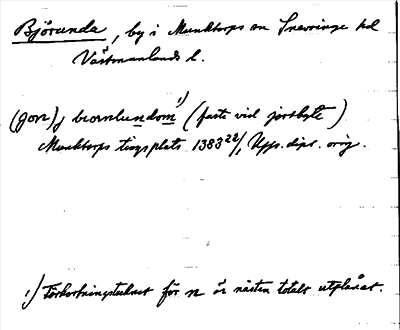 Björunda, by i Munktorps sn Snevringe hd
Västmanlands l.
(jon) j biornlundom 1) (faste vid jordbyte)
Munktorps tingsplats 1383 22/1, Upps. dipl. orig.
1) Förkortningstecknet för n är nästan totalt utplånat.